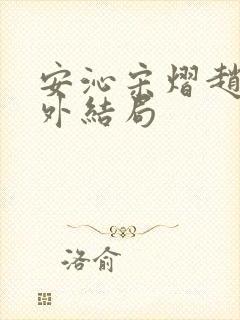 安沁宗熠趙
外結局
洛俞